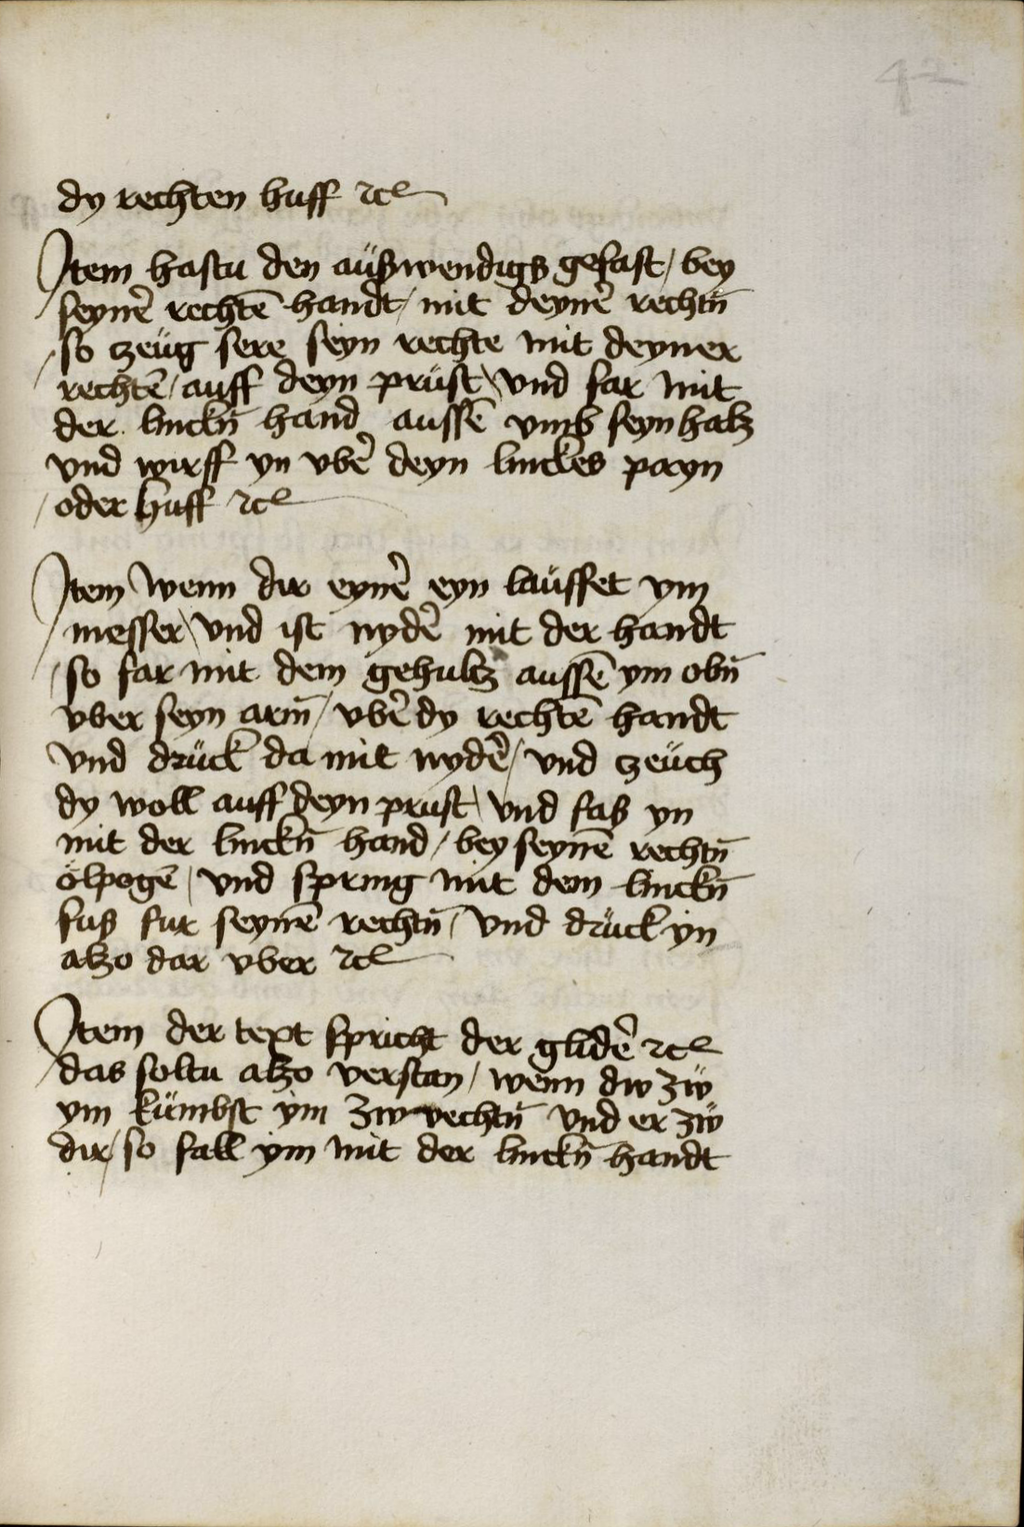 42
dy rechten huff ꝛcꝭ
Item hastu den außwendigs gefast / bey
seynē rechtē handt / mit deynē rechtn̄
so zeüg sere seyn rechte mit deyner
rechtē / auff deyn prüst \ vnd far mit
der linckn̄ hand aussē vmb seyn halz
vnd wirff yn vbē deyn linckes payn
oder huff ꝛcꝭ
Item wenn dir eynē eyn lauffet ym
messer \ vnd ist nydē mit der handt
so far mit dem gehultz aussē ym obn̄
vber seyn arm̄ / vbē dy rechtē handt
vnd drück da mit nydē / vnd zeüch
dy woll auff deyn prust \ vnd fas yn
mit der linckn̄ hand / bey seynē rechtn̄
ölpogē / vnd spring mit dem linckn̄
fuß fur seynē rechtn̄ / vnd drück yn
alzo dar vber ꝛcꝭ
Item der text spricht der glidē ꝛcꝭ
das soltu alzo verstan / wenn dw zẅ
ym kümbst ym zw vechtn̄ vnd er zẅ
dir / so fall ym mit der linckn̄ handt